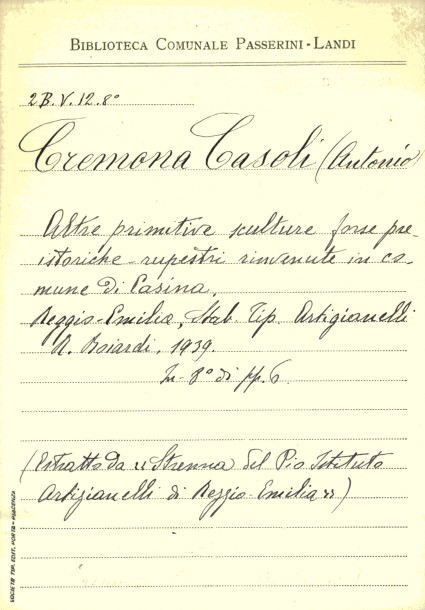 BIBLIOTECA COMUNALE PASSERINI-LANDI
2B.V.12.8°
Cremona Casoli (Antonio)
Altre primitive sculture forse pre-
istoriche-rupestri rinvenute in co-
mune di Casina.
Reggio-Emilia, Stab. Tip. Artigianelli
A. Boiardi, 1939.
In-8° di pp. 6
(Estratto da "Strenna del Pio Istituto
Artigianelli di Reggio-Emilia")
SOCIETÀ TIP. EDIT. PORTA - PIACENZA